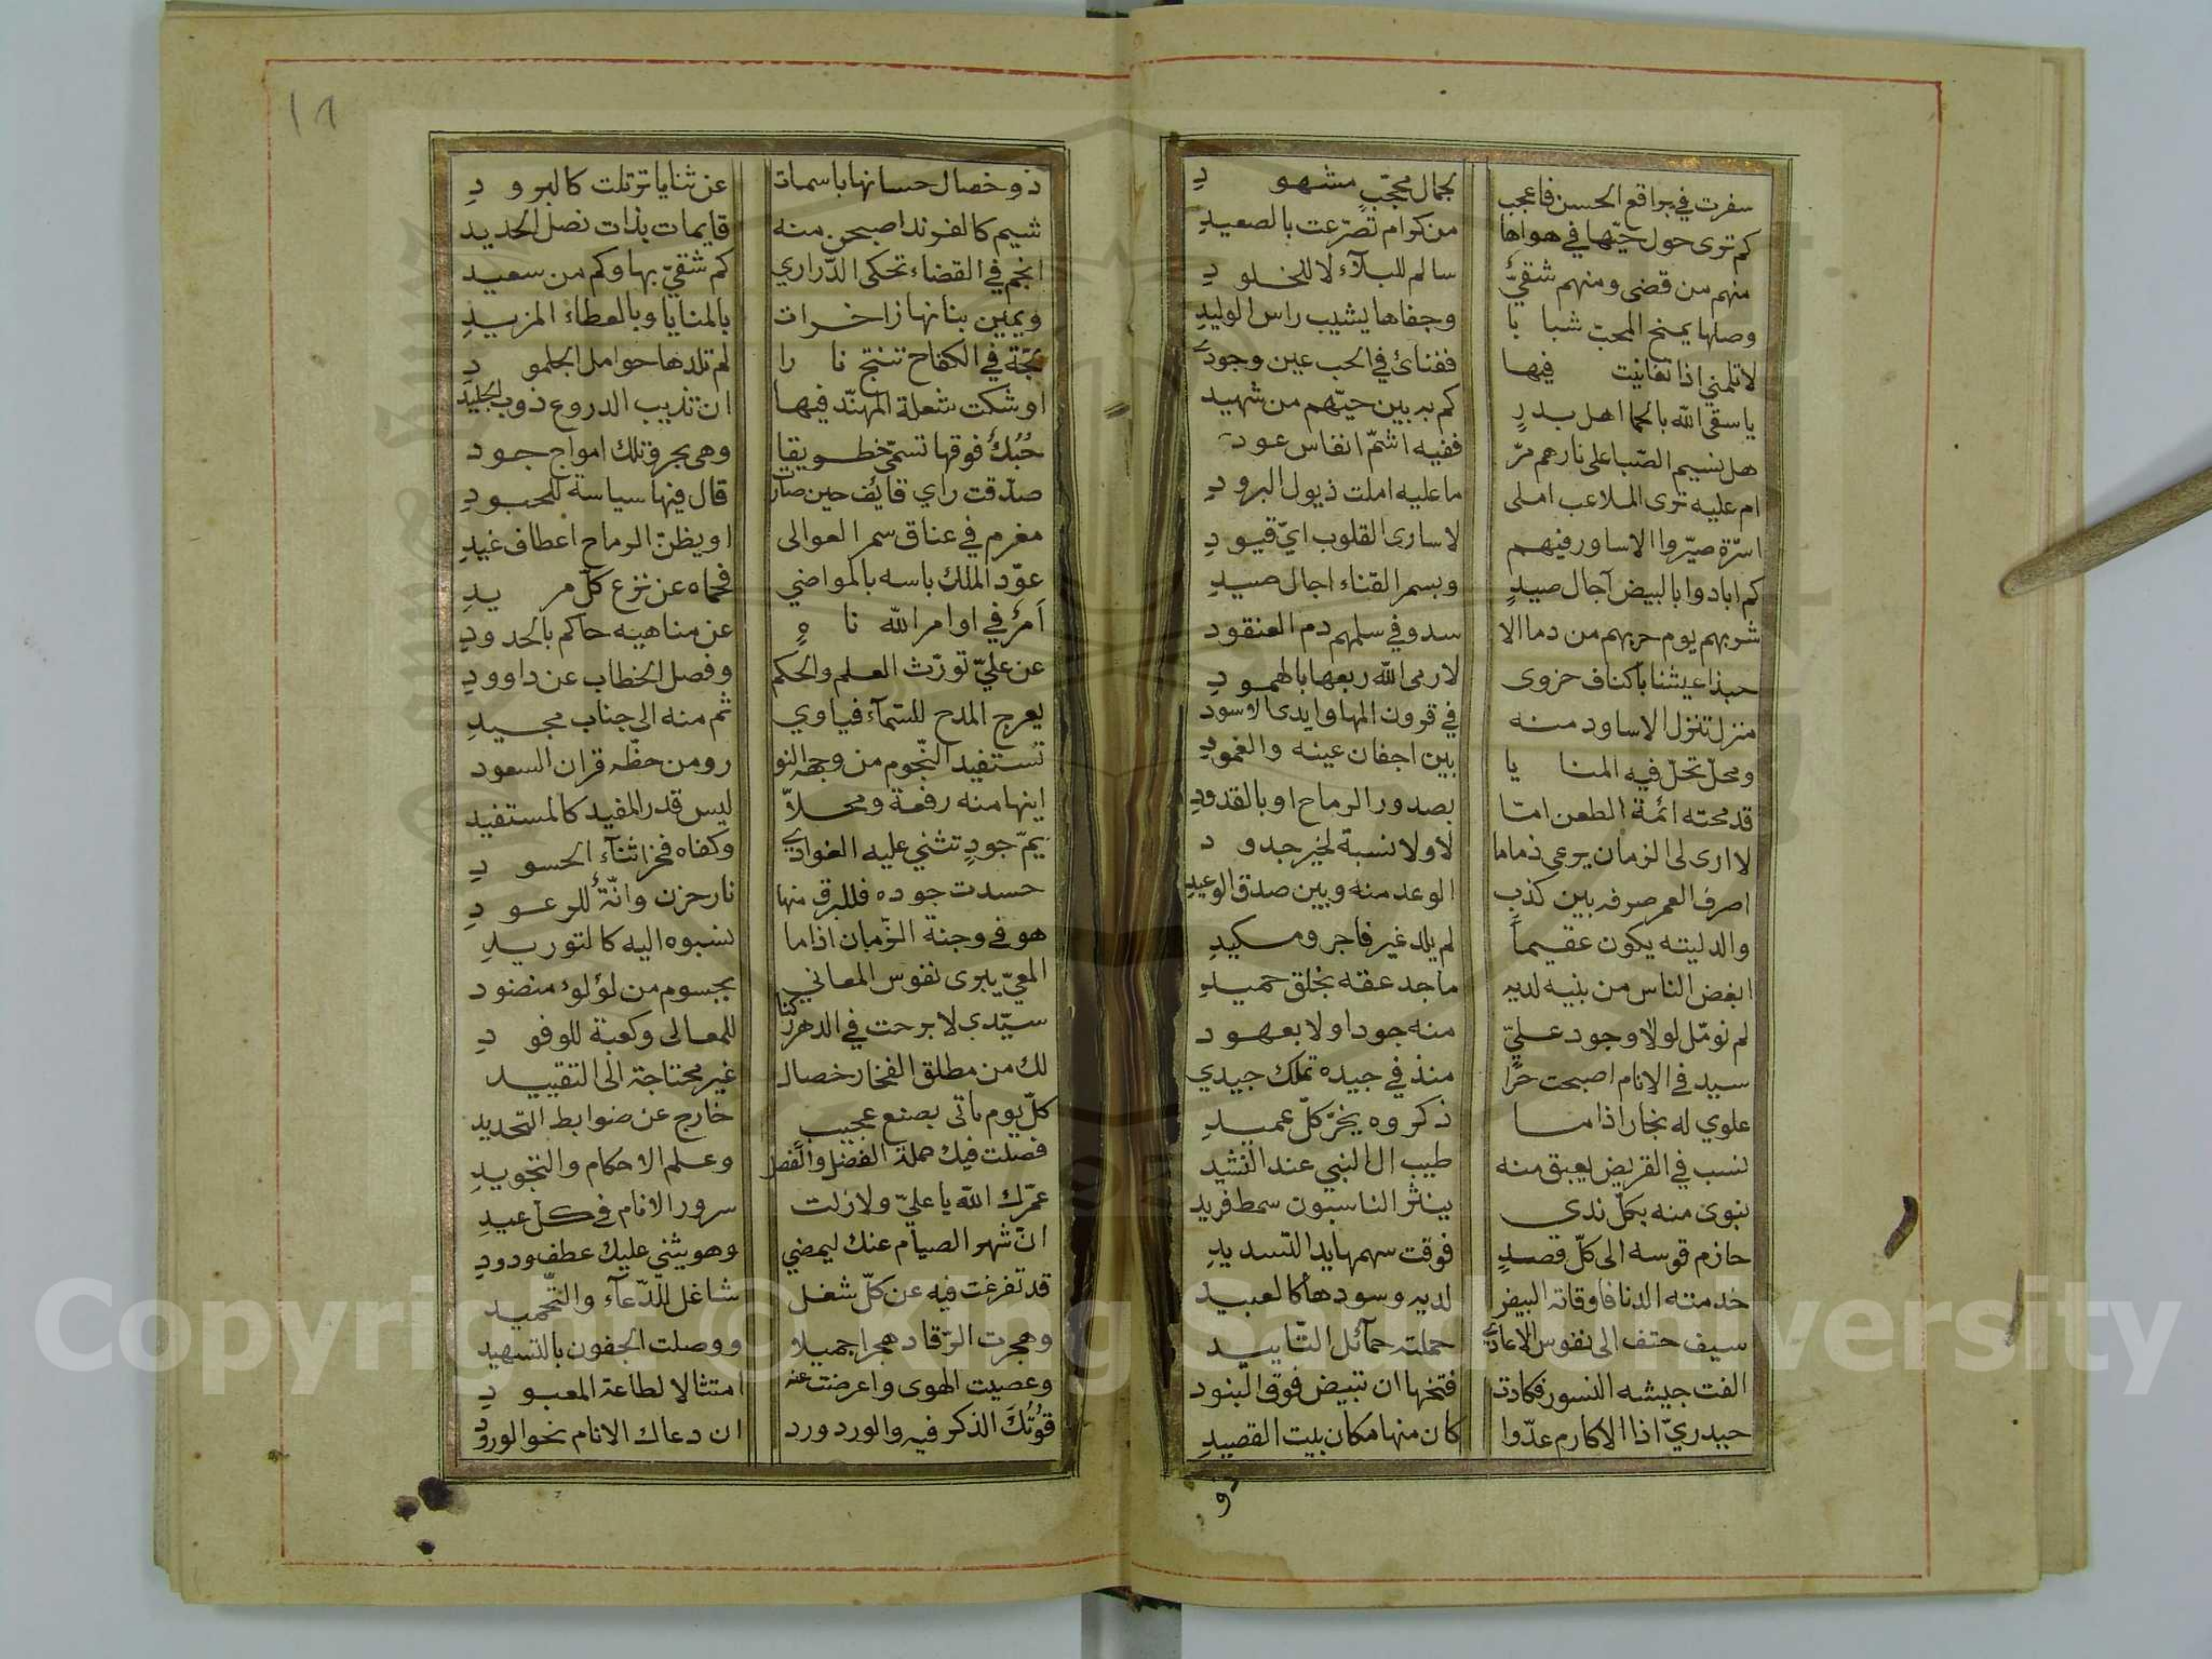 سفرت في براقع الحسن فاعجب بجمال محجّبٍ مشهودِ
كم ترى حول حيّها في هواها من كرام تصرّعت بالصعيدِ
منهم من قضى ومنهم شقيٌّ سالم للبلآء لا للخلودِ
وصلها يمنح المحبّ شبابا وجفاها يشيب راس الوليدِ
لا تلمني اذا تفانيت فيها ففنائ في الحب عين وجودي
يا سقى الله بالحما اهل بدرٍ كم به بين حيّهم من شهيد
هل نسيم الصّبا على نارهم مرّ ففيه اشمّ انفاس عود
ام عليه ترى الملاعب املى ما عليه املت ذيول البرودِ
اسرّة صيّروا الاساور فيهم لاسارى القلوب ايّ قيودِ
كم ابادوا بالبيض آجال صيدٍ وبسمر القناء اجال صيدِ
شربهم يوم حربهم من دما الا سد وفي سلمهم دم العنقود
حبذا عيشنا باكناف حزوى لا رمى الله ربعها بالهمودِ
منزل تنزل الاساود منه في قرون المها وايدى الاسود
ومحلّ تحلّ فيه المنايا بين اجفان عينه والغمودِ
قد محته ائمة الطعن امّا بصدور الرماح او بالقدودِ
لا ارى لى الزمان يرعى ذماما لا ولا نسبة لخير جدود
اصرف العمر صرفه بين كذب الوعد منه وبين صدق الوعيدِ
والد ليته يكون عقيماً لم يلد غير فاجر ومكيدِ
ابغض الناس من بنيه لديه ماجد عقه بخلق حميدِ
لم نومّل لولا وجود عليّ منه جودا ولا بعهود
سيد في الانام اصبحت حرّا منذ في جيده تملك جيدي
علوي له نجار اذا ما ذكروه يخرّ كلّ عميدِ
نسب في القريض يعبق منه طيب ال النبي عند النشيد
نبوى منه بكلّ ندى ينثر الناسبون سمط فريد
حازم قوسه الى كلّ قصدٍ فوقت سهمها يد التسديدِ
خدمته الدنا فاوقاته البيض لديه وسودها كالعبيد
سيف حتف الى نفوس الاعادي حملته حمآئل التّاييد
الفت جيشه النسور فكادت فتخها ان تبيض فوق البنود
حيدريّ اذا الاكارم عدّوا كان منها مكان بيت القصيدِ
ذو
١٦
ذو خصال حسانها باسمات عن ثنايا ترتلت كالبرودِ
شيم كالفرند اصبحن منه قايمات بذات نصل الحديد
انجم في القضاء تحكى الدّراري كم شقيّ بها وكم من سعيد
ويمين بنانها زاخرات بالمنايا وبالعطاء المزيدِ
لجّة في الكفاح تنتج نارا لم تلدها حوامل الجلمودِ
اوشكت شعلة المهنّد فيها ان تذيب الدروع ذوب الجليد
حُبُكٌ فوقها تسمّى خطوطا وهى بحر وتلك امواج جود
صدّقت راي قايف حين صار قال فيها سياسة للحبودِ
مغرم في عناق سمر العوالى او يظنّ الرماح اعطاف غيدِ
عوّد الملك باسه بالمواضي فحماه عن نزع كلّ مريدِ
آمرٌ في اوامر الله ناهٍ عن مناهيه حاكم بالحدودِ
عن عليّ تورّث العلم والحكم وفصل الخطاب عن داوودِ
يعرج المدح للسّمآء فياوي ثم منه الى جناب مجيدِ
تستفيد النّجوم من وجهه النو ر ومن حظّه قران السعود
اينها منه رفعة ومحلاّ ليس قدر المفيد كالمستفيد
يمّ جودٍ تثني عليه الغوادي وكفاه فخرا ثنآء الحسودِ
حسدت جوده فللبرق منها نار حزن وانّة للرعودِ
هو في وجنة الزّمان اذا ما نسبوه اليه كالتوريدِ
المعيّ يبرى نفوس المعاني بجسوم من لؤلوء منضود
سيّدي لا برحت في الدهر ركنا للمعالى وكعبة للوفودِ
لك من مطلق الفخار خصال غير محتاجة الى التقييد
كلّ يوم ياتى بصنع عجيب خارج عن ضوابط التحديد
فصلت فيك جملة الفضل والفصل وعلم الاحكام والتجويدِ
عمّرك الله يا عليّ ولا زلت سرور الانام في كلّ عيدِ
انّ شهر الصيام عنك ليمضي وهو يثني عليك عطف ودودِ
قد تفرغت فيه عن كلّ شغل شاغل للدّعآء والتّحميد
وهجرت الرّقاد هجرا جميلا ووصلت الجفون بالتسهيد
وعصيت الهوى واعرضت عنه امتثالا لطاعة المعبودِ
قُوتُكَ الذكر فيه والورد ورد ان دعاك الانام نحو الورودِ
Copyright © King Saud University